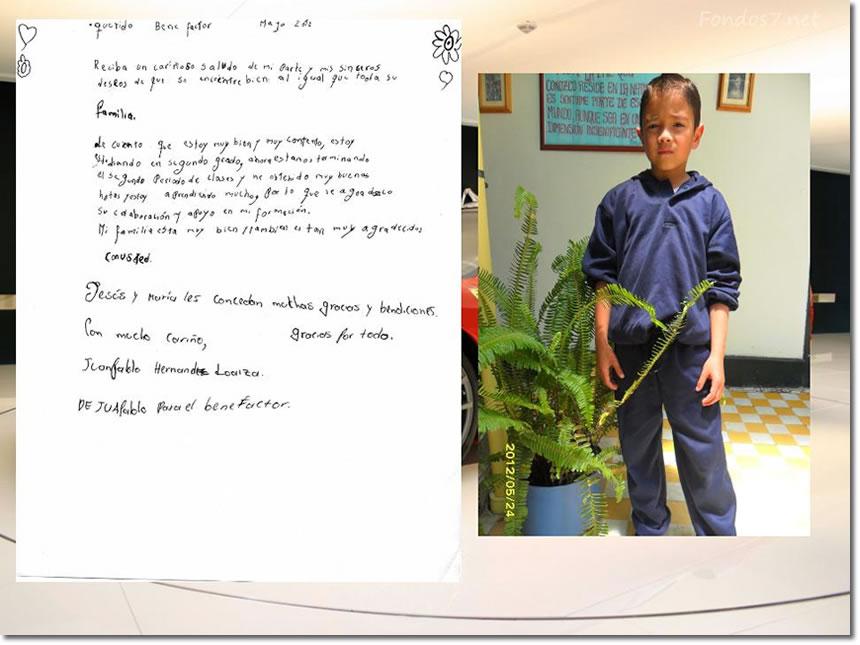 querido Benefactor Mayo
Reciba un cariñoso saludo de mi parte y mis sinceros
deseos de que se encuentre bien al igual que toda su
familia.
de cuento que estoy muy bien y muy contento, estoy
studiando en segundo grado, ahora estamos terminando
el segundo Periodo de clases y he obtenido muy buenas
notas y estoy aprendiendo mucho, Por lo que se agradesco
su colaboración y apoyo en mi formación.
Mi familia esta muy bien y tambien estan muy agradecidos
conusted.
Jesús y María les concedan muchas gracias y bendiciones.
Con mucho cariño, gracias por todo.
Juanpablo Hernandes Loaiza.
DE JUAPablo Para el beneFactor.
Fondos7.net
CONOZCO RESIDE EN LA
ES SENTIRME PARTE DE
MUNDO, AUNQUE SEA EN UN
DIMENSION INSIGNIFICANTE
2012/05/24